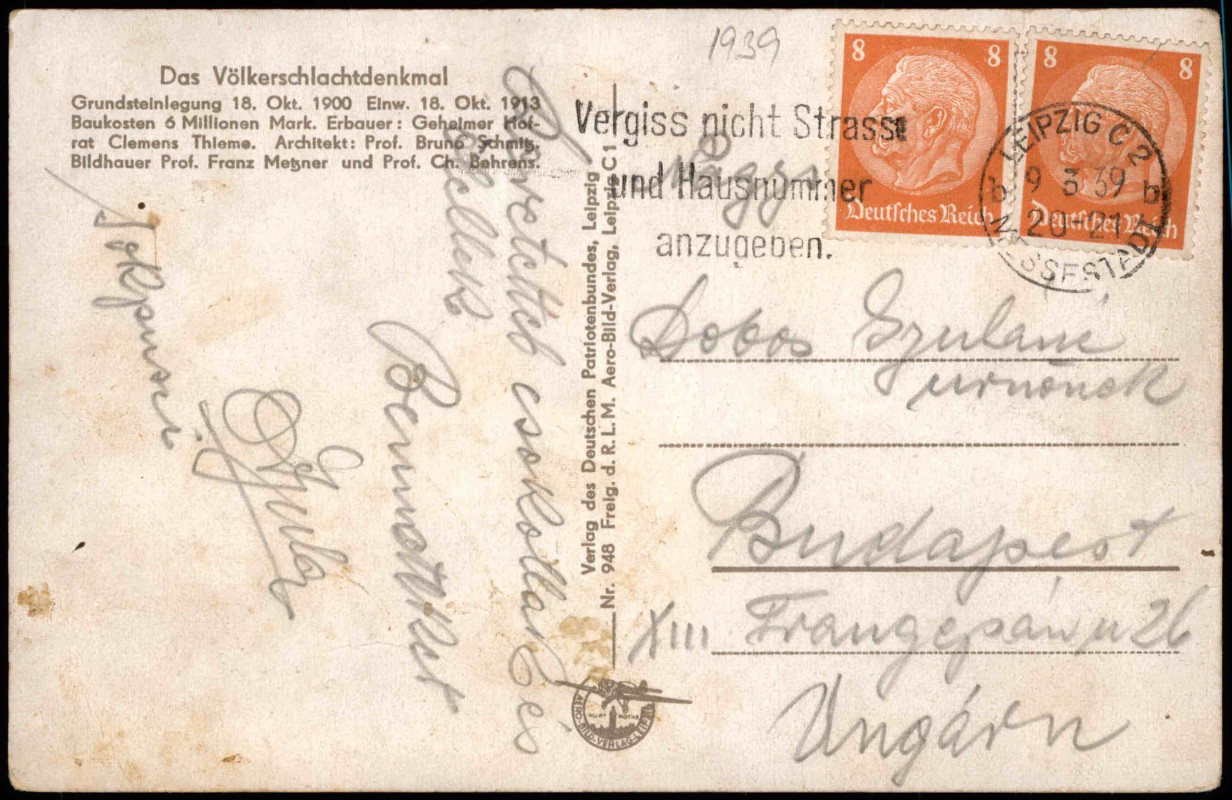 1939
Das Völkerschlachtdenkmal
Grundsteinlegung 18. Okt. 1900 Einw. 18. Okt. 1913
Baukosten 6 Millionen Mark. Erbauer: Geheimer Hof-
rat Clemens Thieme. Architekt: Prof. Bruno Schmitz.
Bildhauer Prof. Franz Metzner und Prof. Ch. Behrens.
csokollak és
ölellek
Gyula
Verlag des Deutschen Patriotenbundes, Leipzig
Nr. 948 Freig. d. R. L. M. Aero-Bild-Verlag, Leipzig C 1
AERO-BILD-VERLAG-LEIPZIG
Vergiss nicht Strasse
und Hausnummer
anzugeben.
8 8
Deutsches Reich
8 8
Deutsches Reich
LEIPZIG C 2
b 9.3.39 b
20-21
MESSESTADT
Dobos Gyuláné
urnőnek
Budapest
XIII Frangepán u 26
Ungárn